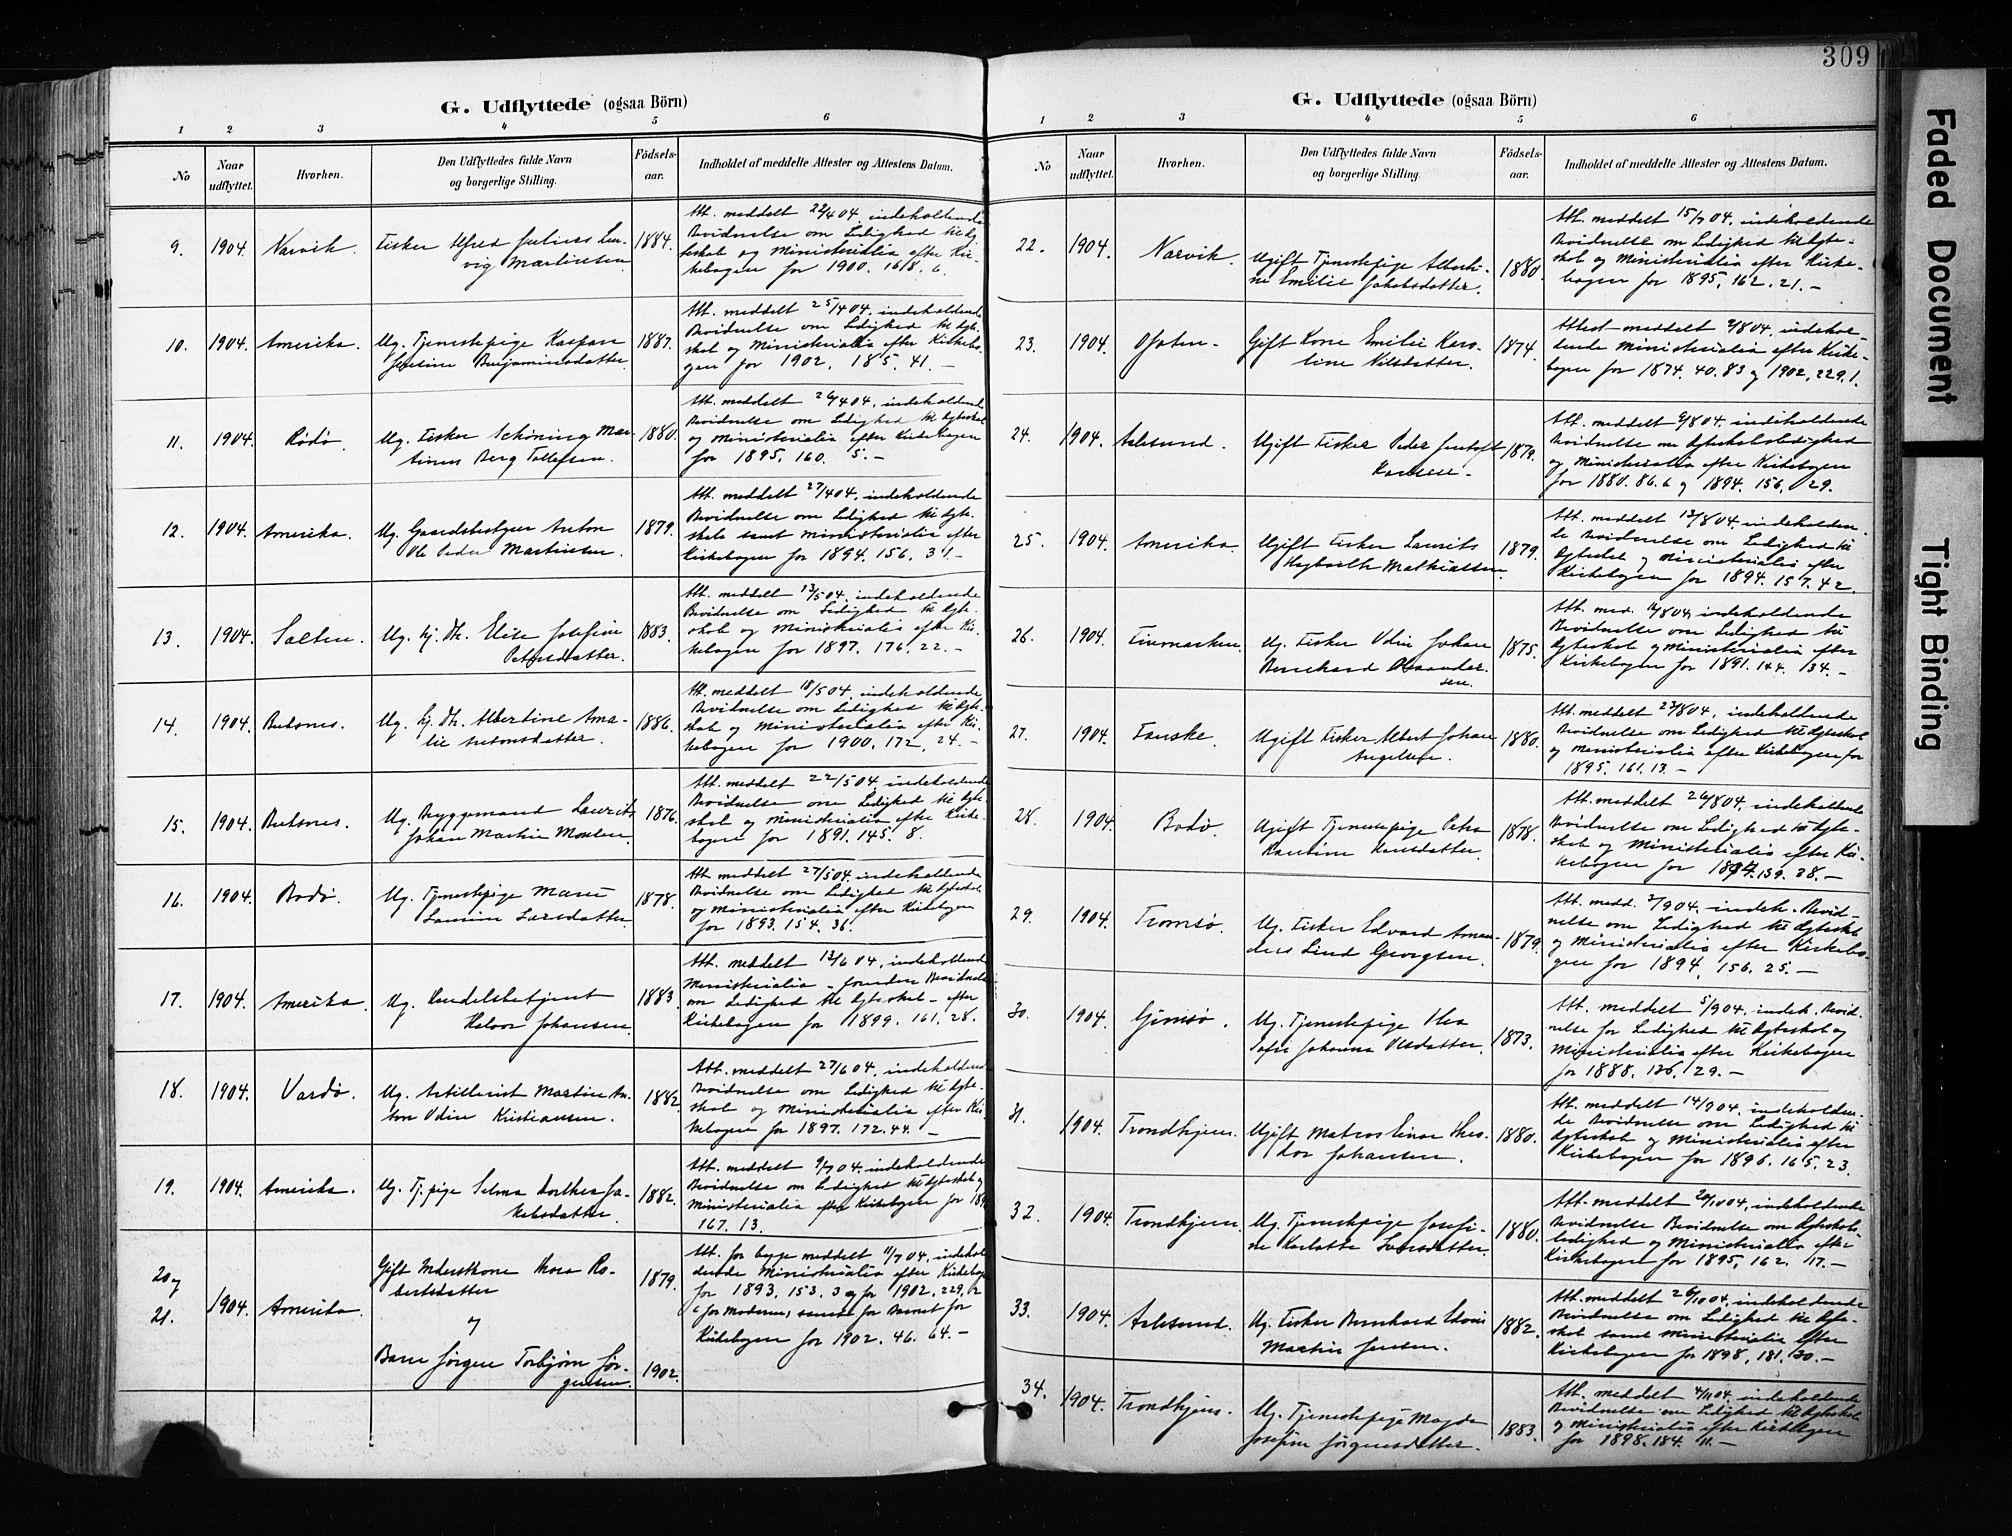 309
G. Udflyttede (ogsaa Börn)
1 2 3 4 5 6
No
Naar udflyttet.
Hvorhen.
Den Udflyttedes fulde Navn og borgerlige Stilling.
Födsels-aar.
Indholdet af meddelte Attester og Attestens Datum.
9. 1904. Narvik. Fisker Alfred Julius Lud-
vig Martinsen 1884.
Att. meddelt 22/4 04, indeholdende
Bevidnelse om Ledighed til Ægte-
skab og Ministerialia efter Kir-
kebogen for 1900. 168. 6.
10. 1904. Amerika. Ug. Tjenestepige Kaspara
Justine Benjaminsdatter. 1887.
Att. meddelt 25/4 04, indeholdende
Bevidnelse om Ledighed til Ægte-
skab og Ministerialia efter Kirkebo-
gen for 1902. 185. 41. —
11. 1904. Rödö. Ug. Fisker Schöning Mar-
tinus Berg Tollefsen. 1880.
Att. meddelt 26/4 04, indeholdende
Bevidnelse om Ledighed til Ægteskab
og Ministerialia efter Kirkebogen
for 1895. 160. 5. —
12. 1904. Amerika. Ug. Gaardsbestyrer Anton
Ole Peder Martinsen. 1879.
Att. meddelt 27/4 04, indeholdende
Bevidnelse om Ledighed til Ægte-
skab samt Ministerialia efter
Kirkebogen for 1894. 156. 31. —
13. 1904. Salten. Ug. hj. Dt. Elise Josefine
Petersdatter. 1883.
Att. meddelt 13/5 04, indeholdende
Bevidnelse om Ledighed til Ægte-
skab og Ministerialia efter Kir-
kebogen for 1897. 176. 22. —
14. 1904. Buksnes. Ug. hj. Dt. Albertine Ama-
lie Antonsdatter. 1886.
Att. meddelt 18/5 04, indeholdende
Bevidnelse om Ledighed til Ægte-
skab og Ministerialia efter Kir-
kebogen for 1900. 172. 24. —
15. 1904. Buksnes. Ug. Bryggemand Laurits
Johan Martin 1876.
Att. meddelt 22/5 04, indeholdende
Bevidnelse om Ledighed til Ægte-
skab og Ministerialia efter Kirke-
bogen for 1891. 145. 8.
16. 1904. Bodö. Ug. Tjenestepige Marie
Larsdatter 1878.
Att. meddelt 27/5 04, indeholdende
Bevidnelse om Ledighed til Ægteskab
og Ministerialia efter Kirkebogen
for 1893. 154. 36.
17. 1904. Amerika. Ug. Handelsbetjent
Halvor Johansen 1883.
Att. meddelt 13/6 04, indeholdende
Ministerialia – foruden Bevidnelse
om Ledighed til Ægteskab – efter
Kirkebogen for 1899. 161. 28.
18. 1904. Vardö. Ug. Artillerist Martin An-
ton Odin Kristiansen. 1882.
Att. meddelt 27/6 04, indeholdende
Bevidnelse om Ledighed til Ægte-
skab og Ministerialia efter Kir-
kebogen for 1897. 172. 44. —
19. 1904. Amerika. Ug. Tj.pige Selma Dorthea Ja-
kobsdatter 1882.
Att. meddelt 9/7 04, indeholdende
Bevidnelse om Ledighed til Ægteskab og
Ministerialia efter Kirkebogen for
167. 13.
20 og 21. 1904. Amerika. Gift Ro-
bertsdatter 1879.
og
Barn Jörgen Torbjörn Jör-
gensen. 1902.
Att. for begge meddelt 11/7 04, indehol-
dende Ministerialia efter Kirkebogen
for 1893. 153. 3 og for 1902. 229.
for Moderen, samt for Barnet for
Kirkebogen for 1902. 46. 64. —
G. Udflyttede (ogsaa Börn)
1 2 3 4 5 6
No
Naar udflyttet.
Hvorhen.
Den Udflyttedes fulde Navn og borgerlige Stilling.
Födsels-aar.
Indholdet af meddelte Attester og Attestens Datum.
22. 1904. Narvik. Ugift Tjenestepige Alberti-
ne Emilie Jakobsdatter. 1880.
Att. meddelt 15/7 04, indeholdende
Bevidnelse om Ledighed til Ægte-
skab og Ministerialia efter Kirke-
bogen for 1895. 162. 21. —
23. 1904. Ofoten. Gift Kone Emilie Karo-
line Nilsdatter. 1874.
Attest meddelt 2/8 04, indehol-
dende Ministerialia efter Kirke-
bogen for 1874. 40. 83 og 1902. 229. 1.
24. 1904. Aalesund. Ugift Fisker Peder Gustaf
Hansen. 1879.
Att. meddelt 9/8 04, indeholdende
Bevidnelse om Ægteskabsledighed
og Ministerialia efter Kirkebogen
for 1880. 86. 6 og 1894. 156. 29.
25. 1904. Amerika. Ugift Fisker Laurits
Mathiassen 1879.
Att. meddelt 13/8 04 indeholden-
de Bevidnelse om Ledighed til
Ægteskab og Ministerialia efter
Kirkebogen for 1894. 157. 42.
26. 1904. Finmarken. Ug. Fisker Odin Johan
Bernhard 1875.
Att. med. 16/8 04, indeholdende
Bevidnelse om Ledighed til
Ægteskab og Ministerialia efter
Kirkebogen for 1891. 144. 134. —
27. 1904. Fauske. Ugift Fisker Albert Johan
Angelsen. 1880.
Att. meddelt 23/8 04, indeholdende
Bevidnelse om Ledighed til Ægteskab
og Ministerialia efter Kirkebogen for
1895. 161. 13. —
28. 1904. Bodö. Ugift Tjenestepige Petra
Hansdatter. 1878.
Att. meddelt 26/8 04, indeholdende
Bevidnelse om Ledighed til Ægte-
skab og Ministerialia efter Kir-
kebogen for 1894. 159. 38. —
29. 1904. Tromsö. Ug. Fisker Edvard Aman-
dus Lind Georgsen. 1879.
Att. medd. 2/9 04, indeh. Bevid-
nelse om Ledighed til Ægteskab
og Ministerialia efter Kirkebo-
gen for 1894. 156. 25. —
30. 1904. Gimsö. Ug. Tjenestepige
Johanna Olsdatter. 1873.
Att. meddelt 5/9 04, indeh. Bevid-
nelse for Ledighed til Ægteskab og
Ministerialia efter Kirkebogen
for 1888. 136. 29. —
31. 1904. Trondhjem. Ugift Matros Einar
Johansen. 1880.
Att. meddelt 14/9 04, indeholden-
de Bevidnelse om Ledighed til
Ægteskab og Ministerialia efter
Kirkebogen for 1896. 165. 23.
32. 1904. Trondhjem. Ug. Tjenestepige Josefi-
ne Karlotte Iversdatter. 1880.
Att. meddelt 20/10 04, indeholdende
Bevidnelse Bevidnelse om Ægteskabs-
ledighed og Ministerialia efter
Kirkebogen for 1895. 162. 17. —
33. 1904. Aalesund. Ug. Fisker Bernhard
Martin Jensen. 1882.
Att. meddelt 26/10 04, indeholdende
Bevidnelse om Ledighed til Ægte-
skab samt Ministerialia efter
Kirkebogen for 1898. 181. 30. —
34. 1904. Trondhjem. Ug. Tjenestepige Magda
Josefine Jörgensdatter. 1883.
Att. meddelt 4/11 04, indeholdende
Bevidnelse om Ledighed til Ægteskab
og Ministerialia efter Kirkebogen
for 1898. 184. 11. —
Faded Document
Tight Binding